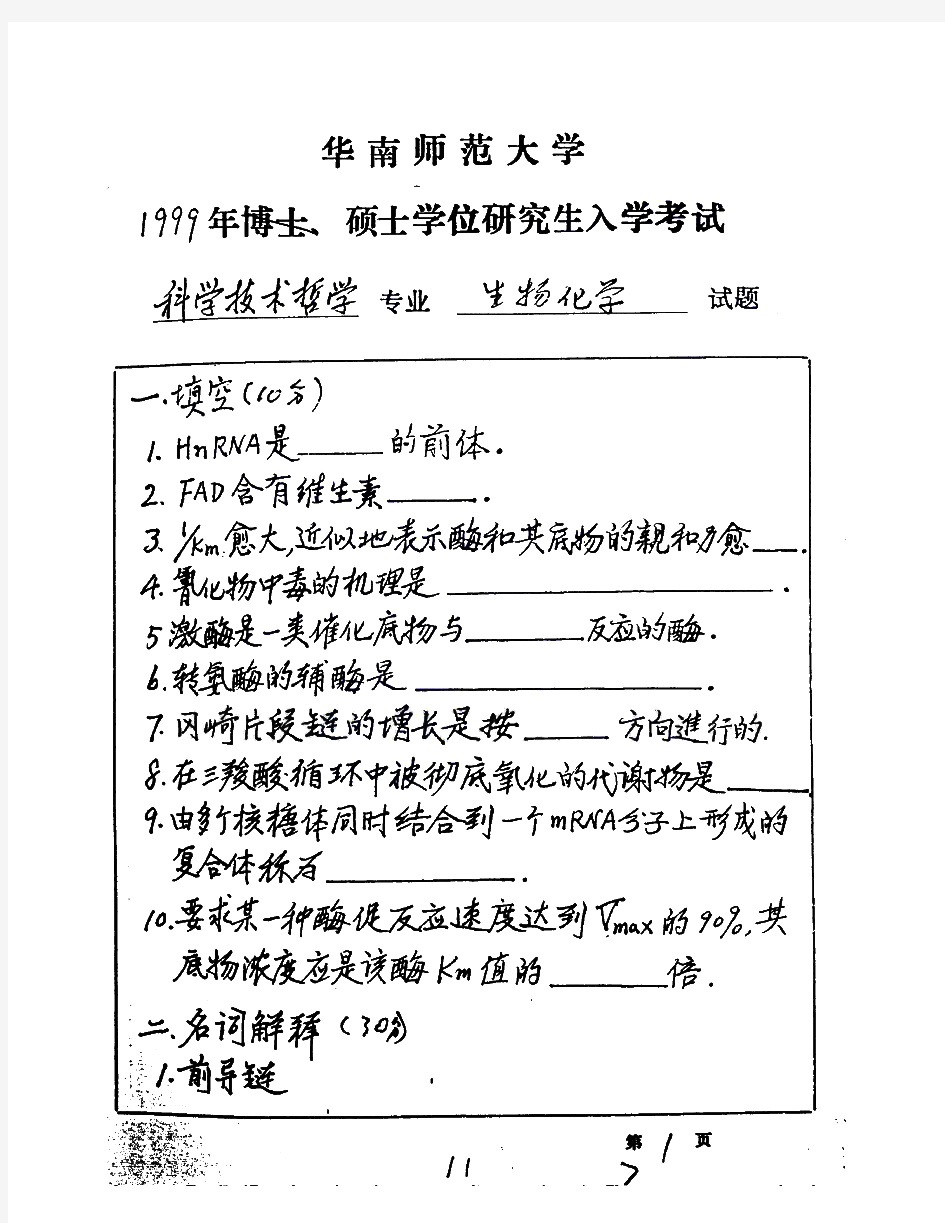 华南师范大学
1999年博士、硕士学位研究生入学考试
科学技术哲学 专业 生物化学 试题
一.填空(10分)
1. HnRNA是______的前体.
2. FAD含有维生素______.
3. 1/Km愈大,近似地表示酶和其底物的親和力愈___.
4. 氰化物中毒的机理是______.
5 激酶是一类催化底物与______反应的酶.
6. 转氨酶的辅酶是______.
7. 冈崎片段链的增长是按______方向進行的.
8. 在三羧酸循环中被彻底氧化的代谢物是______
9. 由多个核糖体同时结合到一个mRNA分子上形成的
复合体称为______.
10. 要求某一种酶促反应速度达到Vmax的90%,其
底物浓度应是该酶Km值的______倍.
二.名词解释(30分)
1. 前导链
第 1 页
11 7